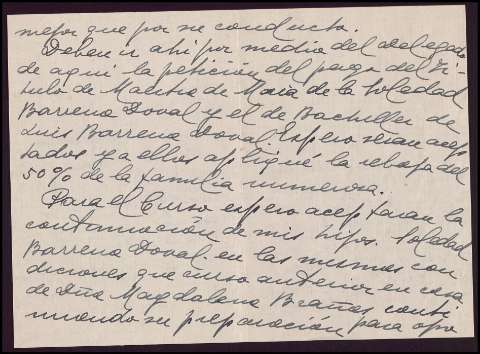 mejor que por su conducto.
Deben ir ahí por medio del Delegado
de aquí la petición del pago del Tí-
tulo de Maestra de Maria de la Soledad
Barrena Doval y el de Bachiller de
Luis Barrena Doval. Espero sean acep
tados y a ellos apliqué la rebaja del
50% de la familia numerosa.
Para el Curso espero aceptaran la
continuación de mis hijos. Soledad
Barrena Doval. en las mismas con
diciones que curso anterior en casa
de Dña Magdalena Brañas conti
nuando su preparación para opo